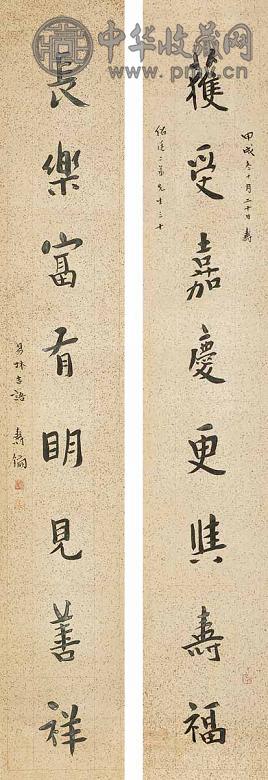 中华收藏网
www.pmcn.cn
獲受嘉慶更與壽福
甲戌冬十月二十日壽
二弟先生三十
長樂富有明見善祥
易林吉語
壽鏞